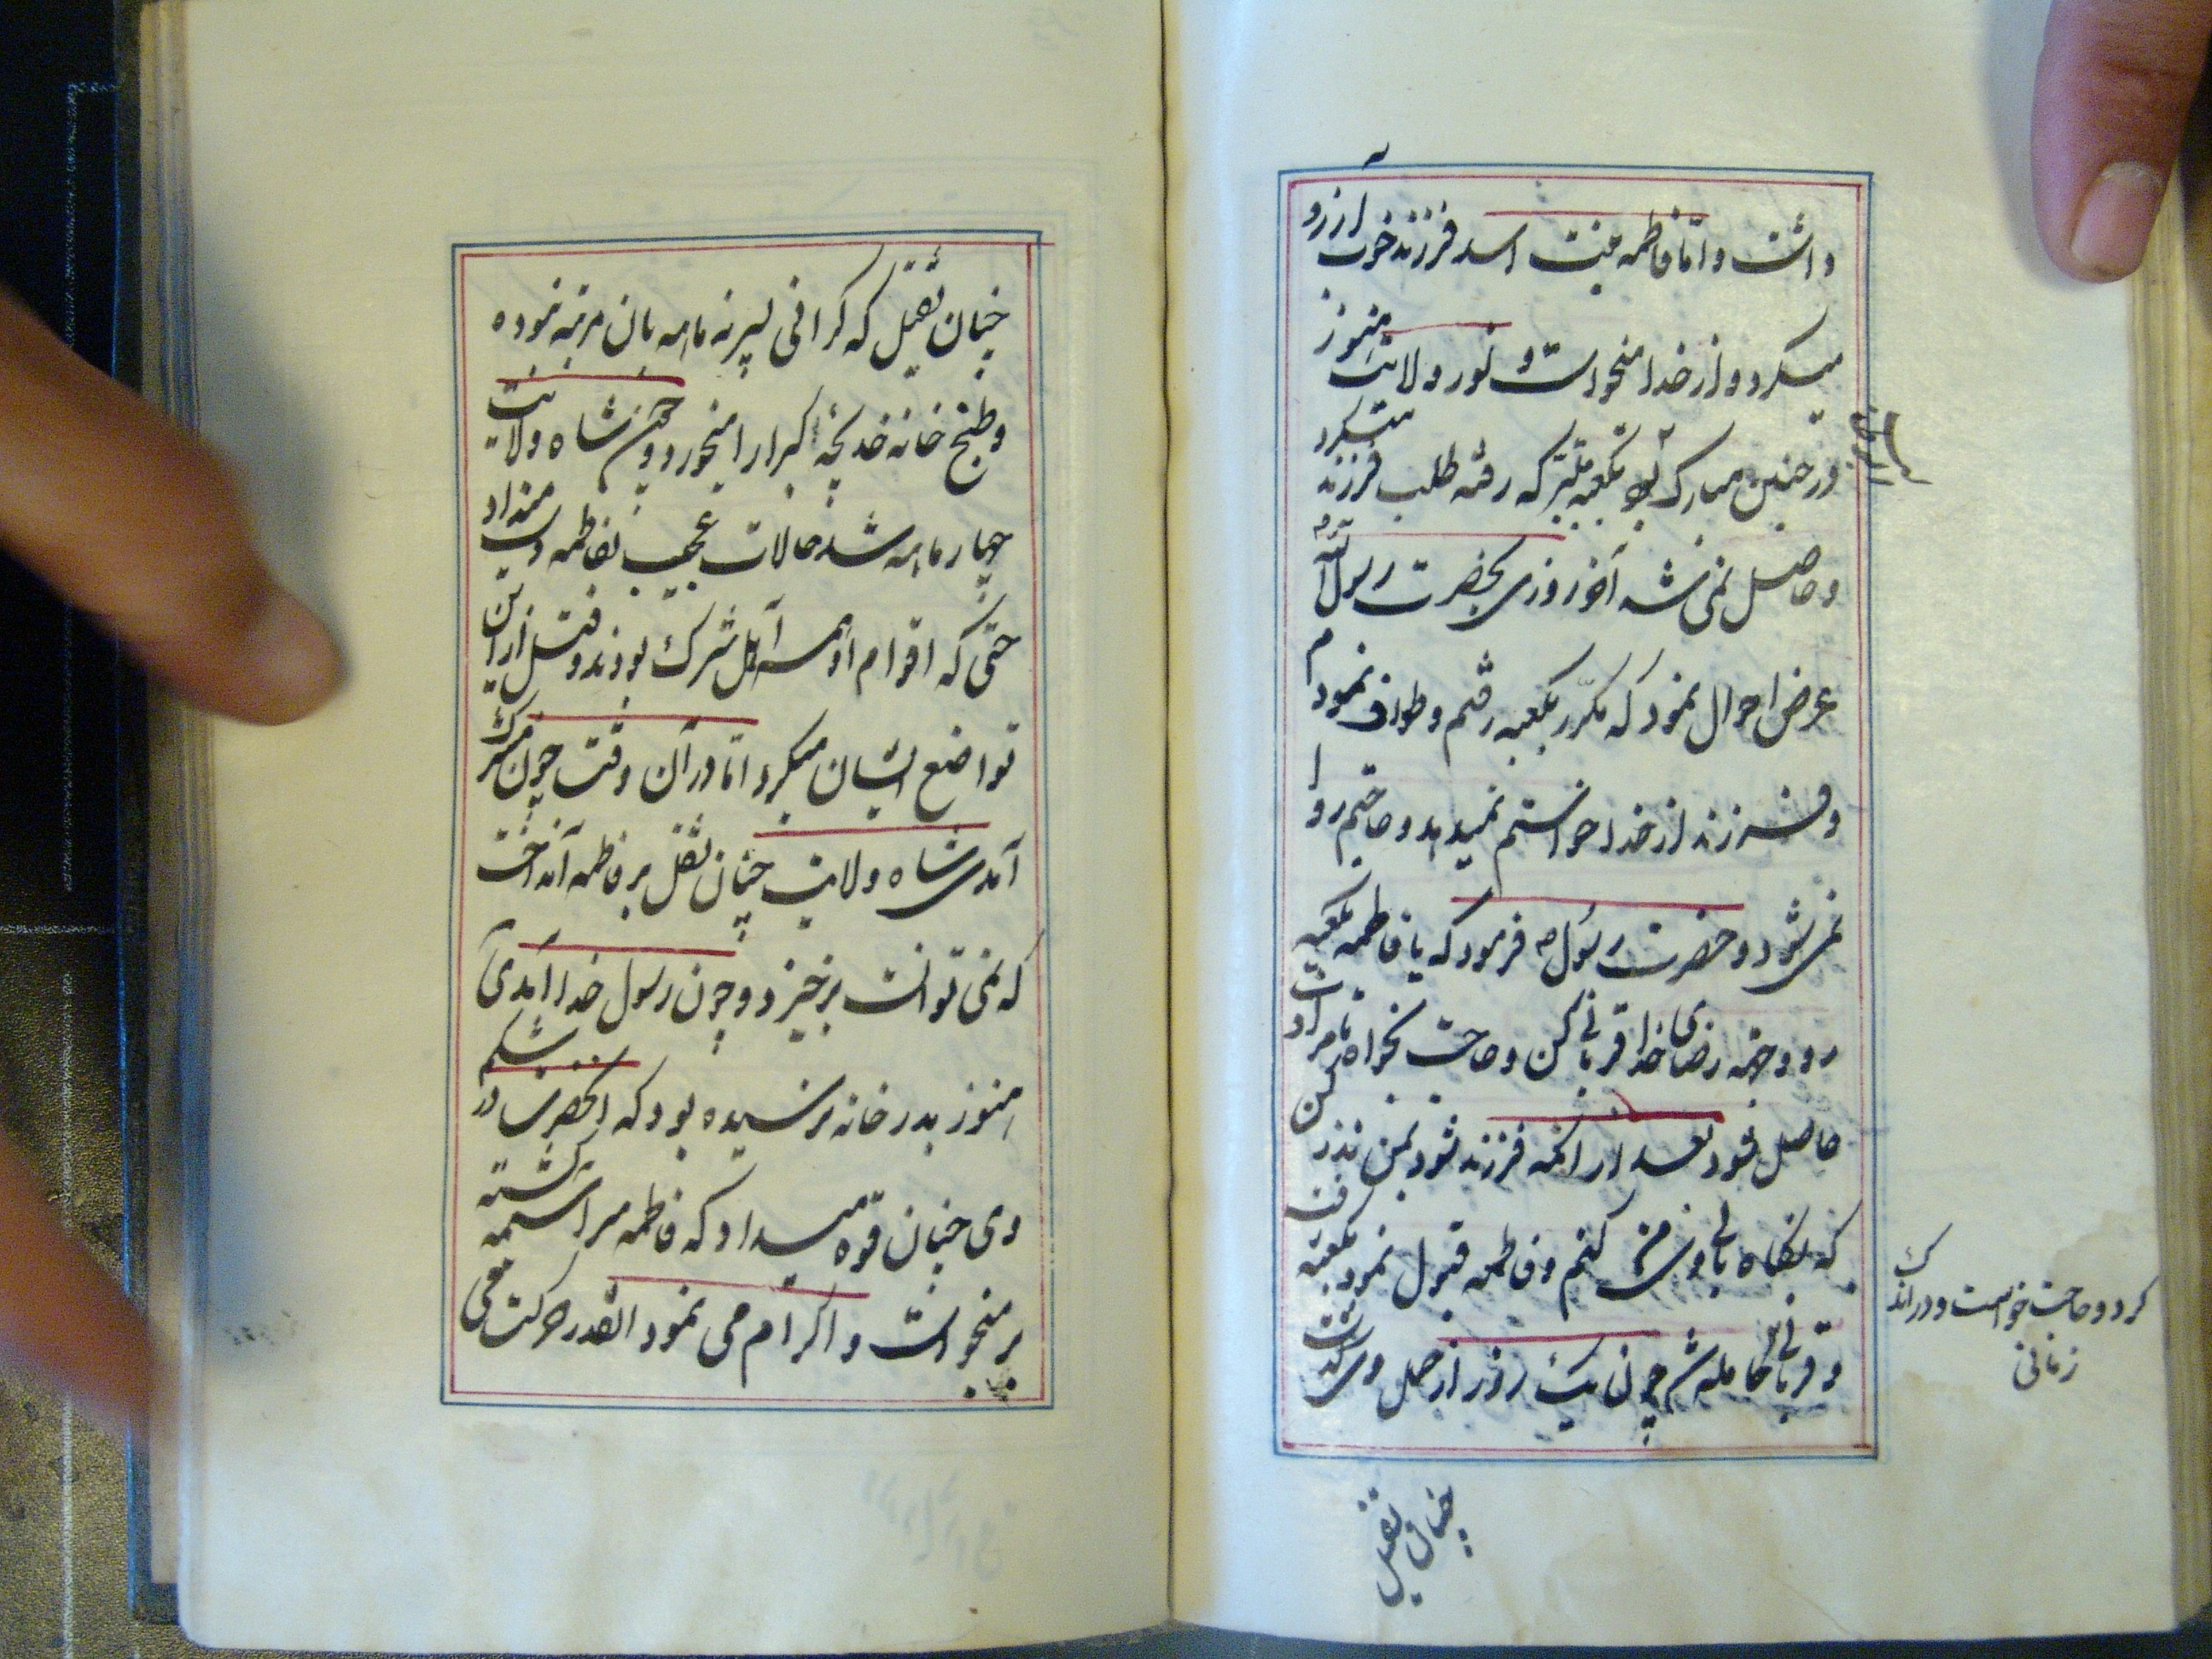 داشت و اما فاطمه بنت اسد فرزند خوب آرزو
میکرد و از خدا میخواست و نور ولایت هنوز
در جنین مبارک او بکعبه متبرکه رفته طلب فرزند میکرد
و حاصل نمی شد آخر روزی بحضرت رسول الله
عرض احوال نمود که مکرر بکعبه رفتم و طواف نمودم
و فرزند از خدا خواستم نمیدهد و حاجتم روا
نمی شود و حضرت رسول ص فرمود که یا فاطمه بکعبه
رو و جهة رضای خدا قربانی کن و حاجت بخواه تا مرادت
حاصل شود بعد از آنکه فرزند شود بمن نذر کن
که نگاه بانی وی من کنم و فاطمه قبول نمود بکعبه رفت
و قربانی حامله شد چون یک روز از حمل وی گذشت
کرد و حاجت خواست و در اندک
زمانی
چنان ثقیل
چنان ثقیل که کرانی پسر نه ماهه بان مرتبه نموده
و طبخ خانه خدیجه کبرا را میخورد و چون شاه ولایت
چهار ماهه شد حالات عجیب بفاطمه دست میداد
حتی که اقوام او همه اهل شرک بودند و قبل از این
تواضع ایشان میکرد اما در آن وقت چون مشرک
آمدی شاه ولایت چنان ثقل بر فاطمه انداخت
که نمی توانست برخیزد و چون رسول خدا آمدی
هنوز بدر خانه نرسیده بود که آنحضرت در شکم
وی چنان قوه میداد که فاطمه سراسیمه گشته
بر میخواست و اکرام می نمود القدر حرکت می